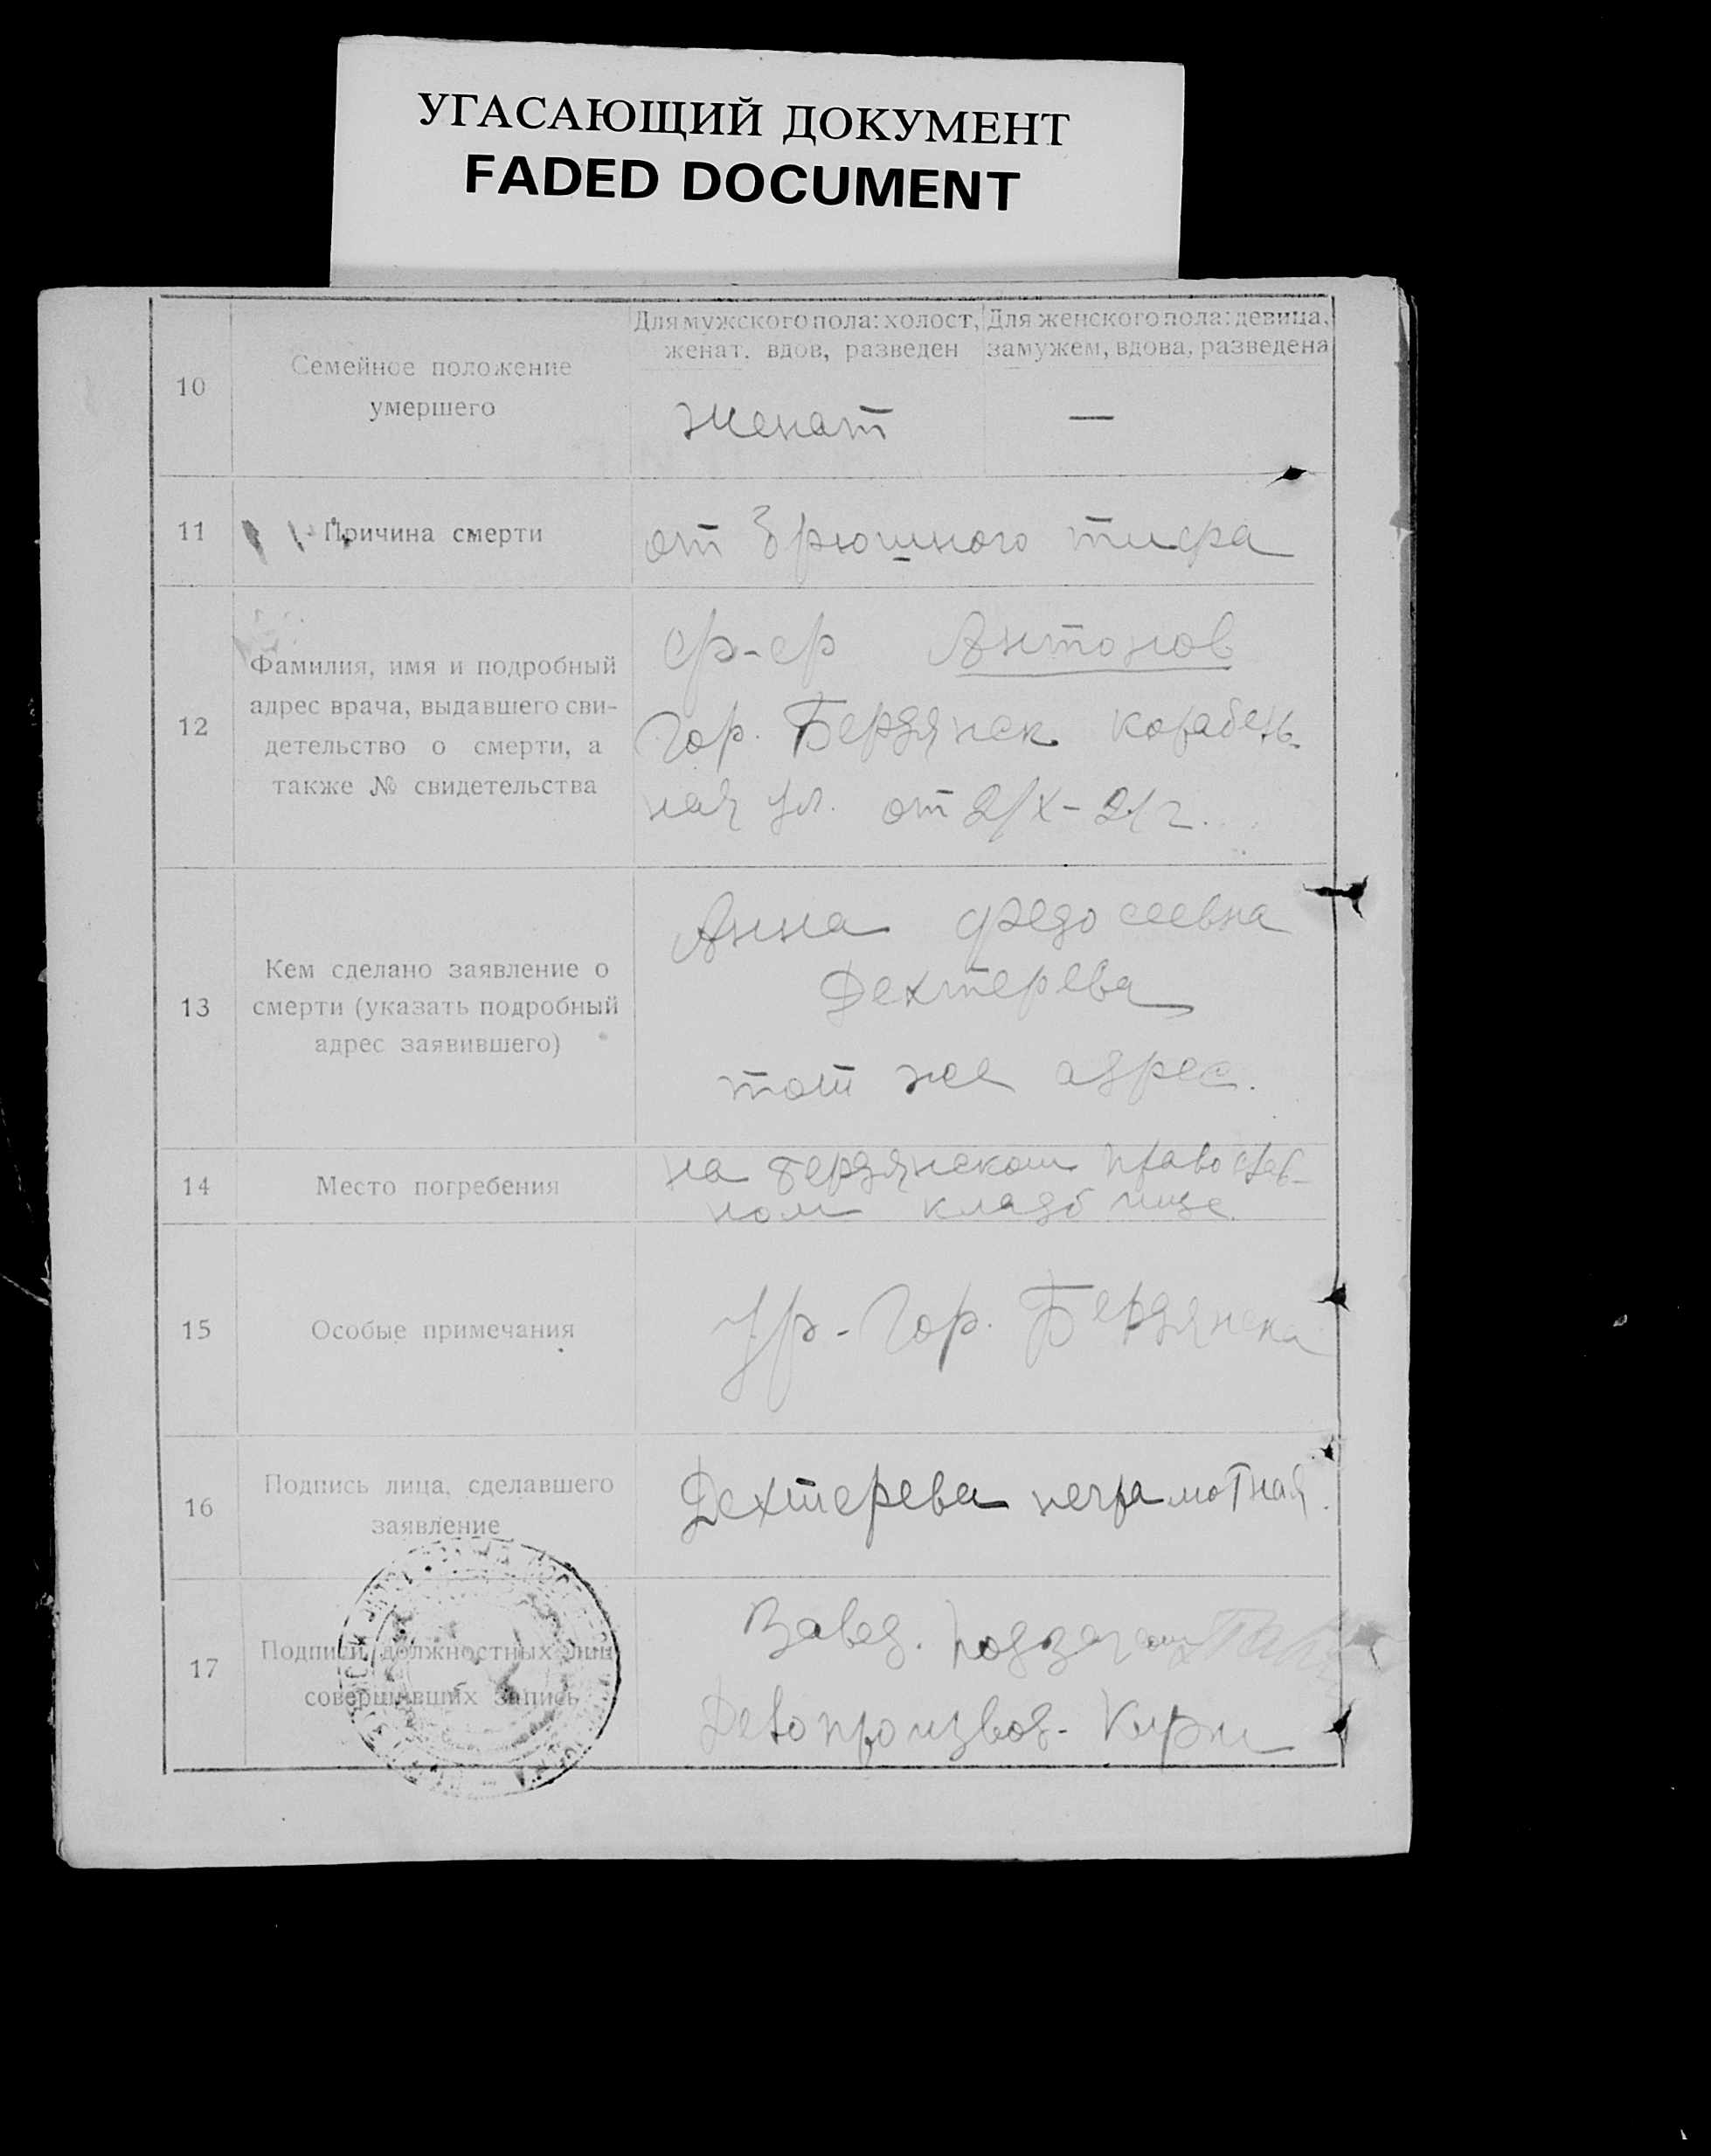 УГАСАЮЩИЙ ДОКУМЕНТ
FADED DOCUMENT
10
Семейное положение
умершего
Для мужского пола: холост,
женат, вдов, разведен
Для женского пола: девица,
замужем, вдова, разведена
женат
—
11
Причина смерти
от брюшного тифа
12
Фамилия, имя и подробный
адрес врача, выдавшего сви-
детельство о смерти, а
также № свидетельства
Антонов
Гор. Бердянск Корабель-
ная ул. от 2/X-21г.
13
Кем сделано заявление о
смерти (указать подробный
адрес заявившего)
Анна Федосеевна
Дехтерева
тот же адрес.
14
Место погребения
на бердянском православ-
ном кладбище
15
Особые примечания
Гор. Бердянска
16
Подпись лица, сделавшего
заявление
Дехтерева неграмотная.
17
Подписи должностных лиц
совершивших запись
Завед.
Делопроизвод-